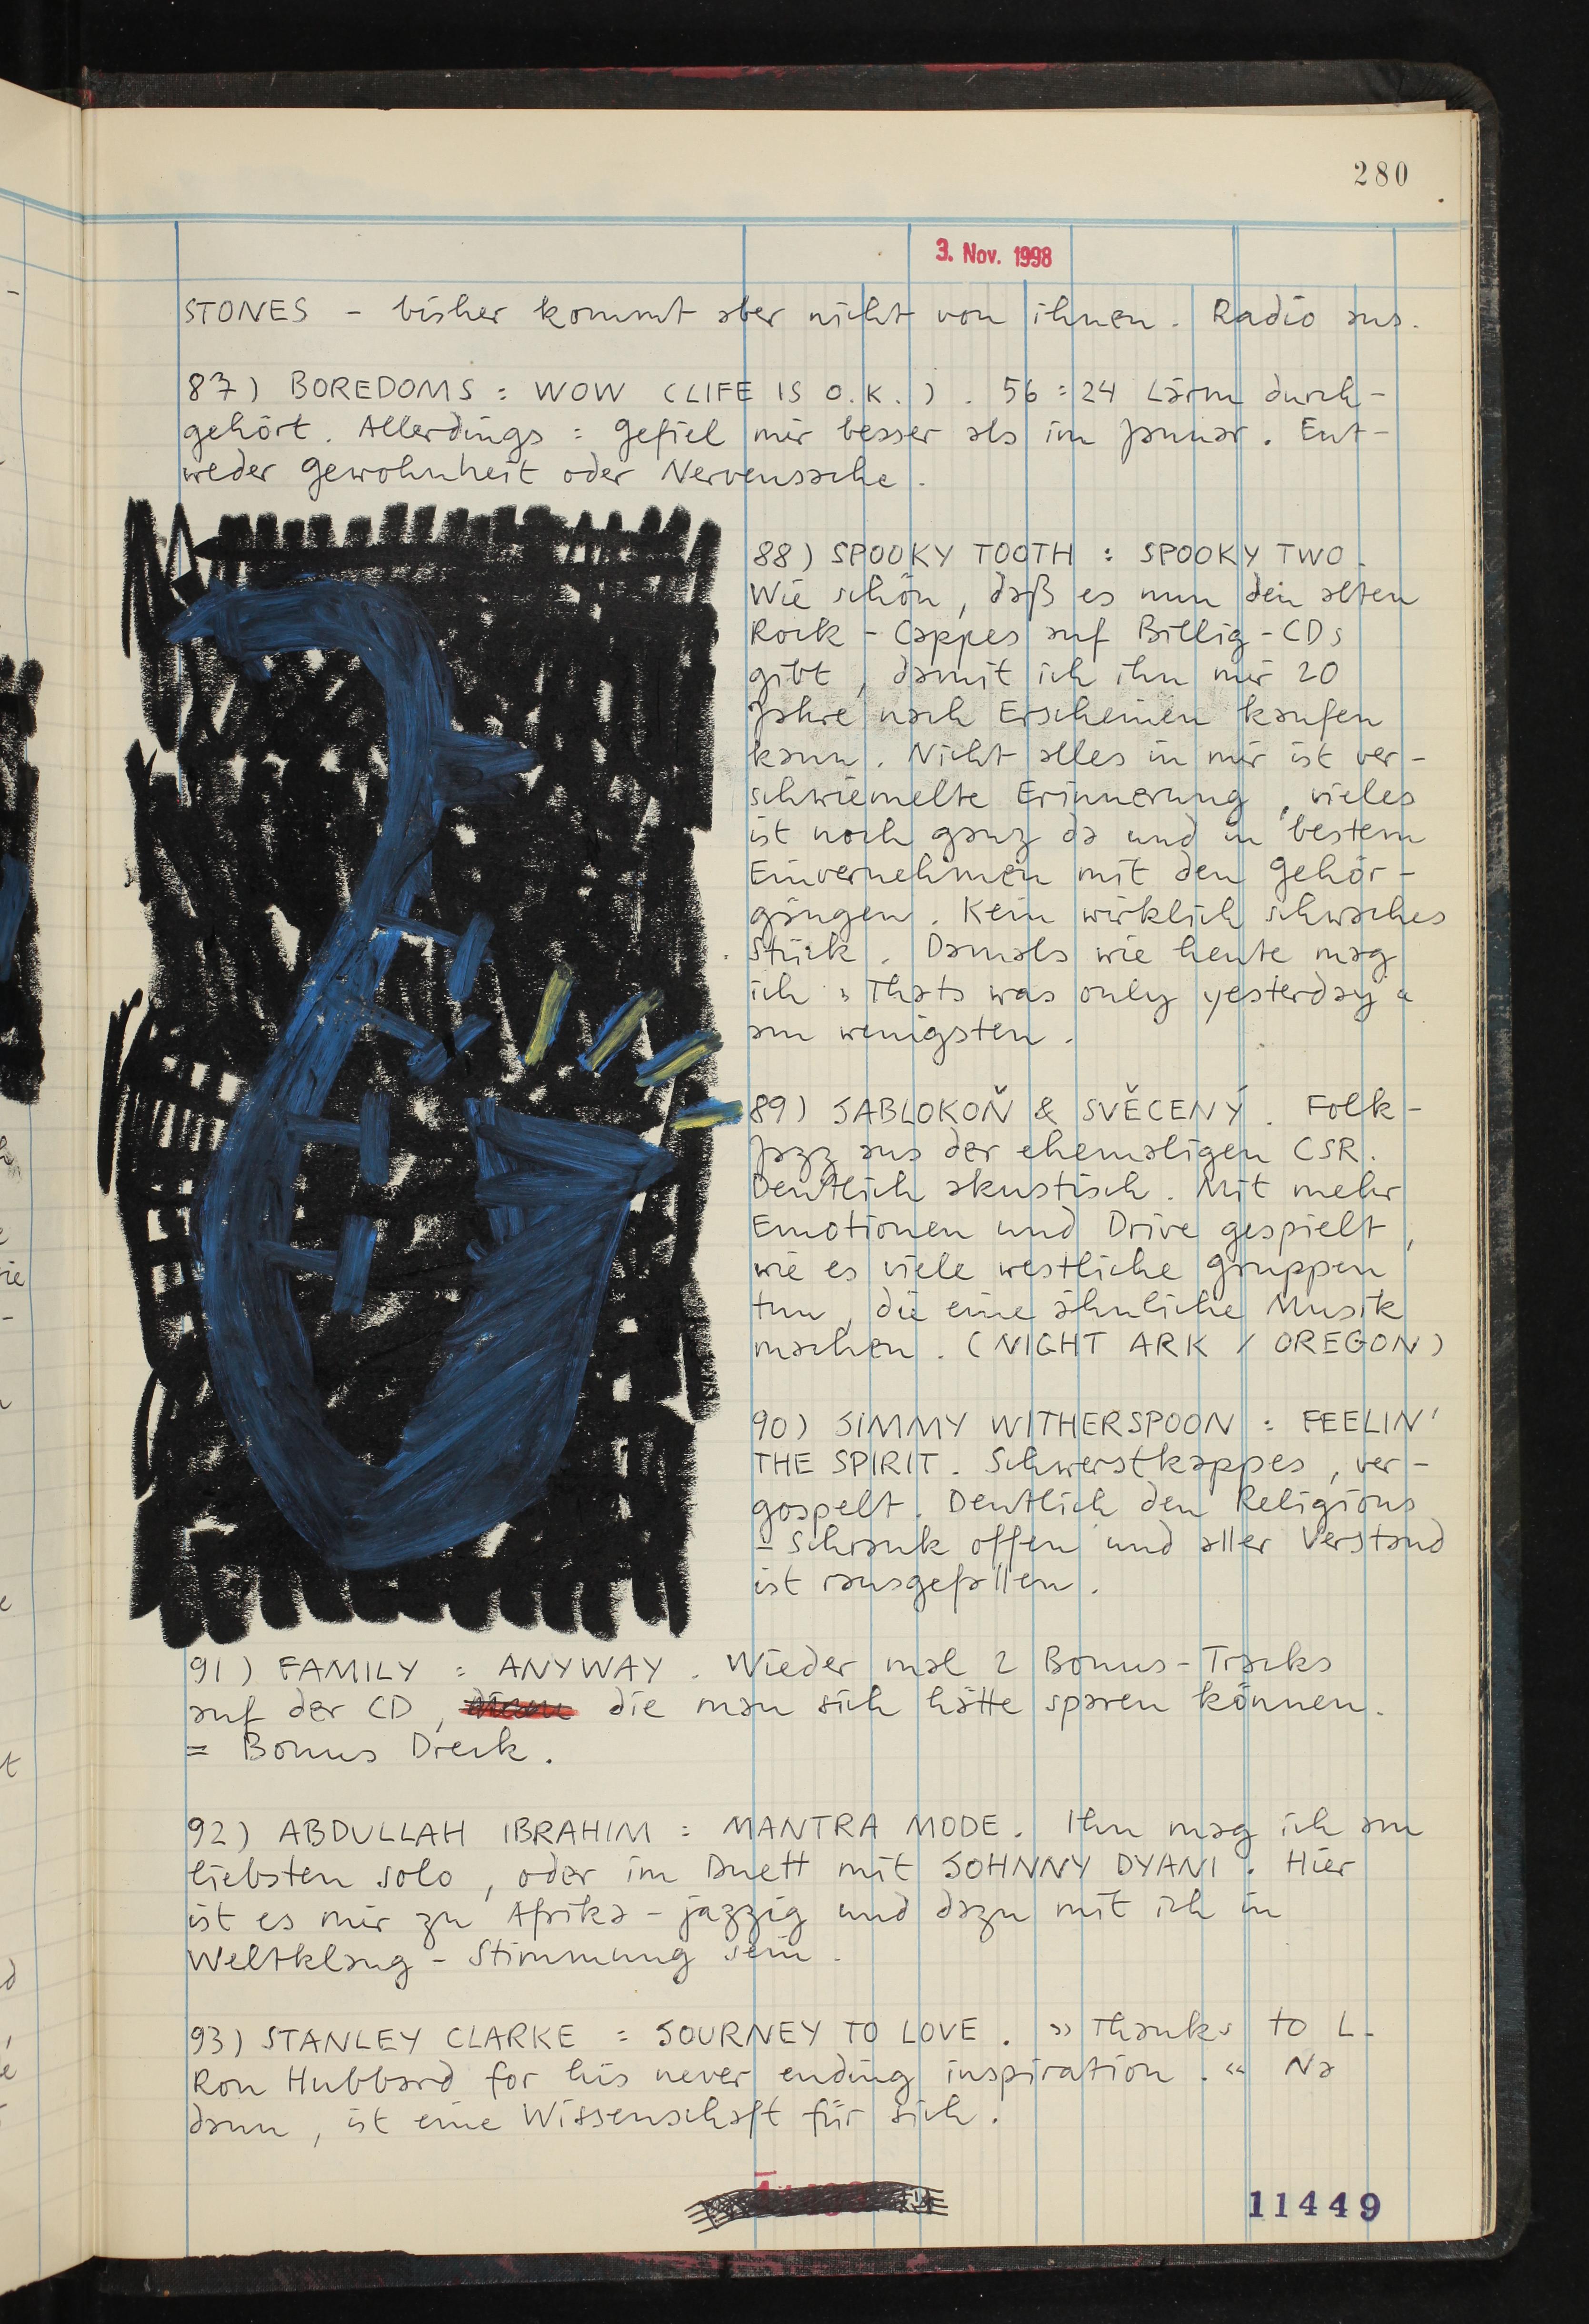 280
3. Nov. 1998
STONES - bisher kommt aber nicht von ihnen. Radio aus.
87) BOREDOMS : WOW (LIFE IS O.K.). 56:24 Lärm durch-
gehört. Allerdings : Gefiel mir besser als im Januar. Ent-
weder Gewohnheit oder Nervensache.
88) SPOOKY TOOTH : SPOOKY TWO.
Wie schön, daß es nun den alten
Rock-Cappes auf Billig-CDs
gibt, damit ich ihn mir 20
Jahre nach Erscheinen kaufen
kann. Nicht alles in mir ist ver-
schwiemelte Erinnerung, vieles
ist noch ganz da und in bestem
Einvernehmen mit den Gehör-
gängen. Kein wirklich schwaches
Stück. Damals wie heute mag
ich »Thats was only yesterday«
am wenigsten.
89) JABLOKOŇ & SVĚCENÝ. Folk-
Jazz aus der ehemaligen CSR.
Deutlich akustisch. Mit mehr
Emotionen und Drive gespielt,
wie es viele westliche Gruppen
tun, die eine ähnliche Musik
machen. (NIGHT ARK / OREGON)
90) JIMMY WITHERSPOON : FEELIN'
THE SPIRIT. Schwerstkappes, ver-
gospelt. Deutlich den Religions
- Schrank offen und aller Verstand
ist rausgefallen.
91) FAMILY : ANYWAY. Wieder mal 2 Bonus-Tracks
auf der CD, die man sich hätte sparen können.
= Bonus Dreck.
92) ABDULLAH IBRAHIM : MANTRA MODE. Ihn mag ich am
liebsten solo, oder im Duett mit JOHNNY DYANI. Hier
ist es mir zu Afrika-jazzig und dazu mit ich in
Weltklang-Stimmung sein.
93) STANLEY CLARKE : JOURNEY TO LOVE. »Thanks to L.
Ron Hubbard for his never ending inspiration.« Na
dann, ist eine Wissenschaft für sich.
11449